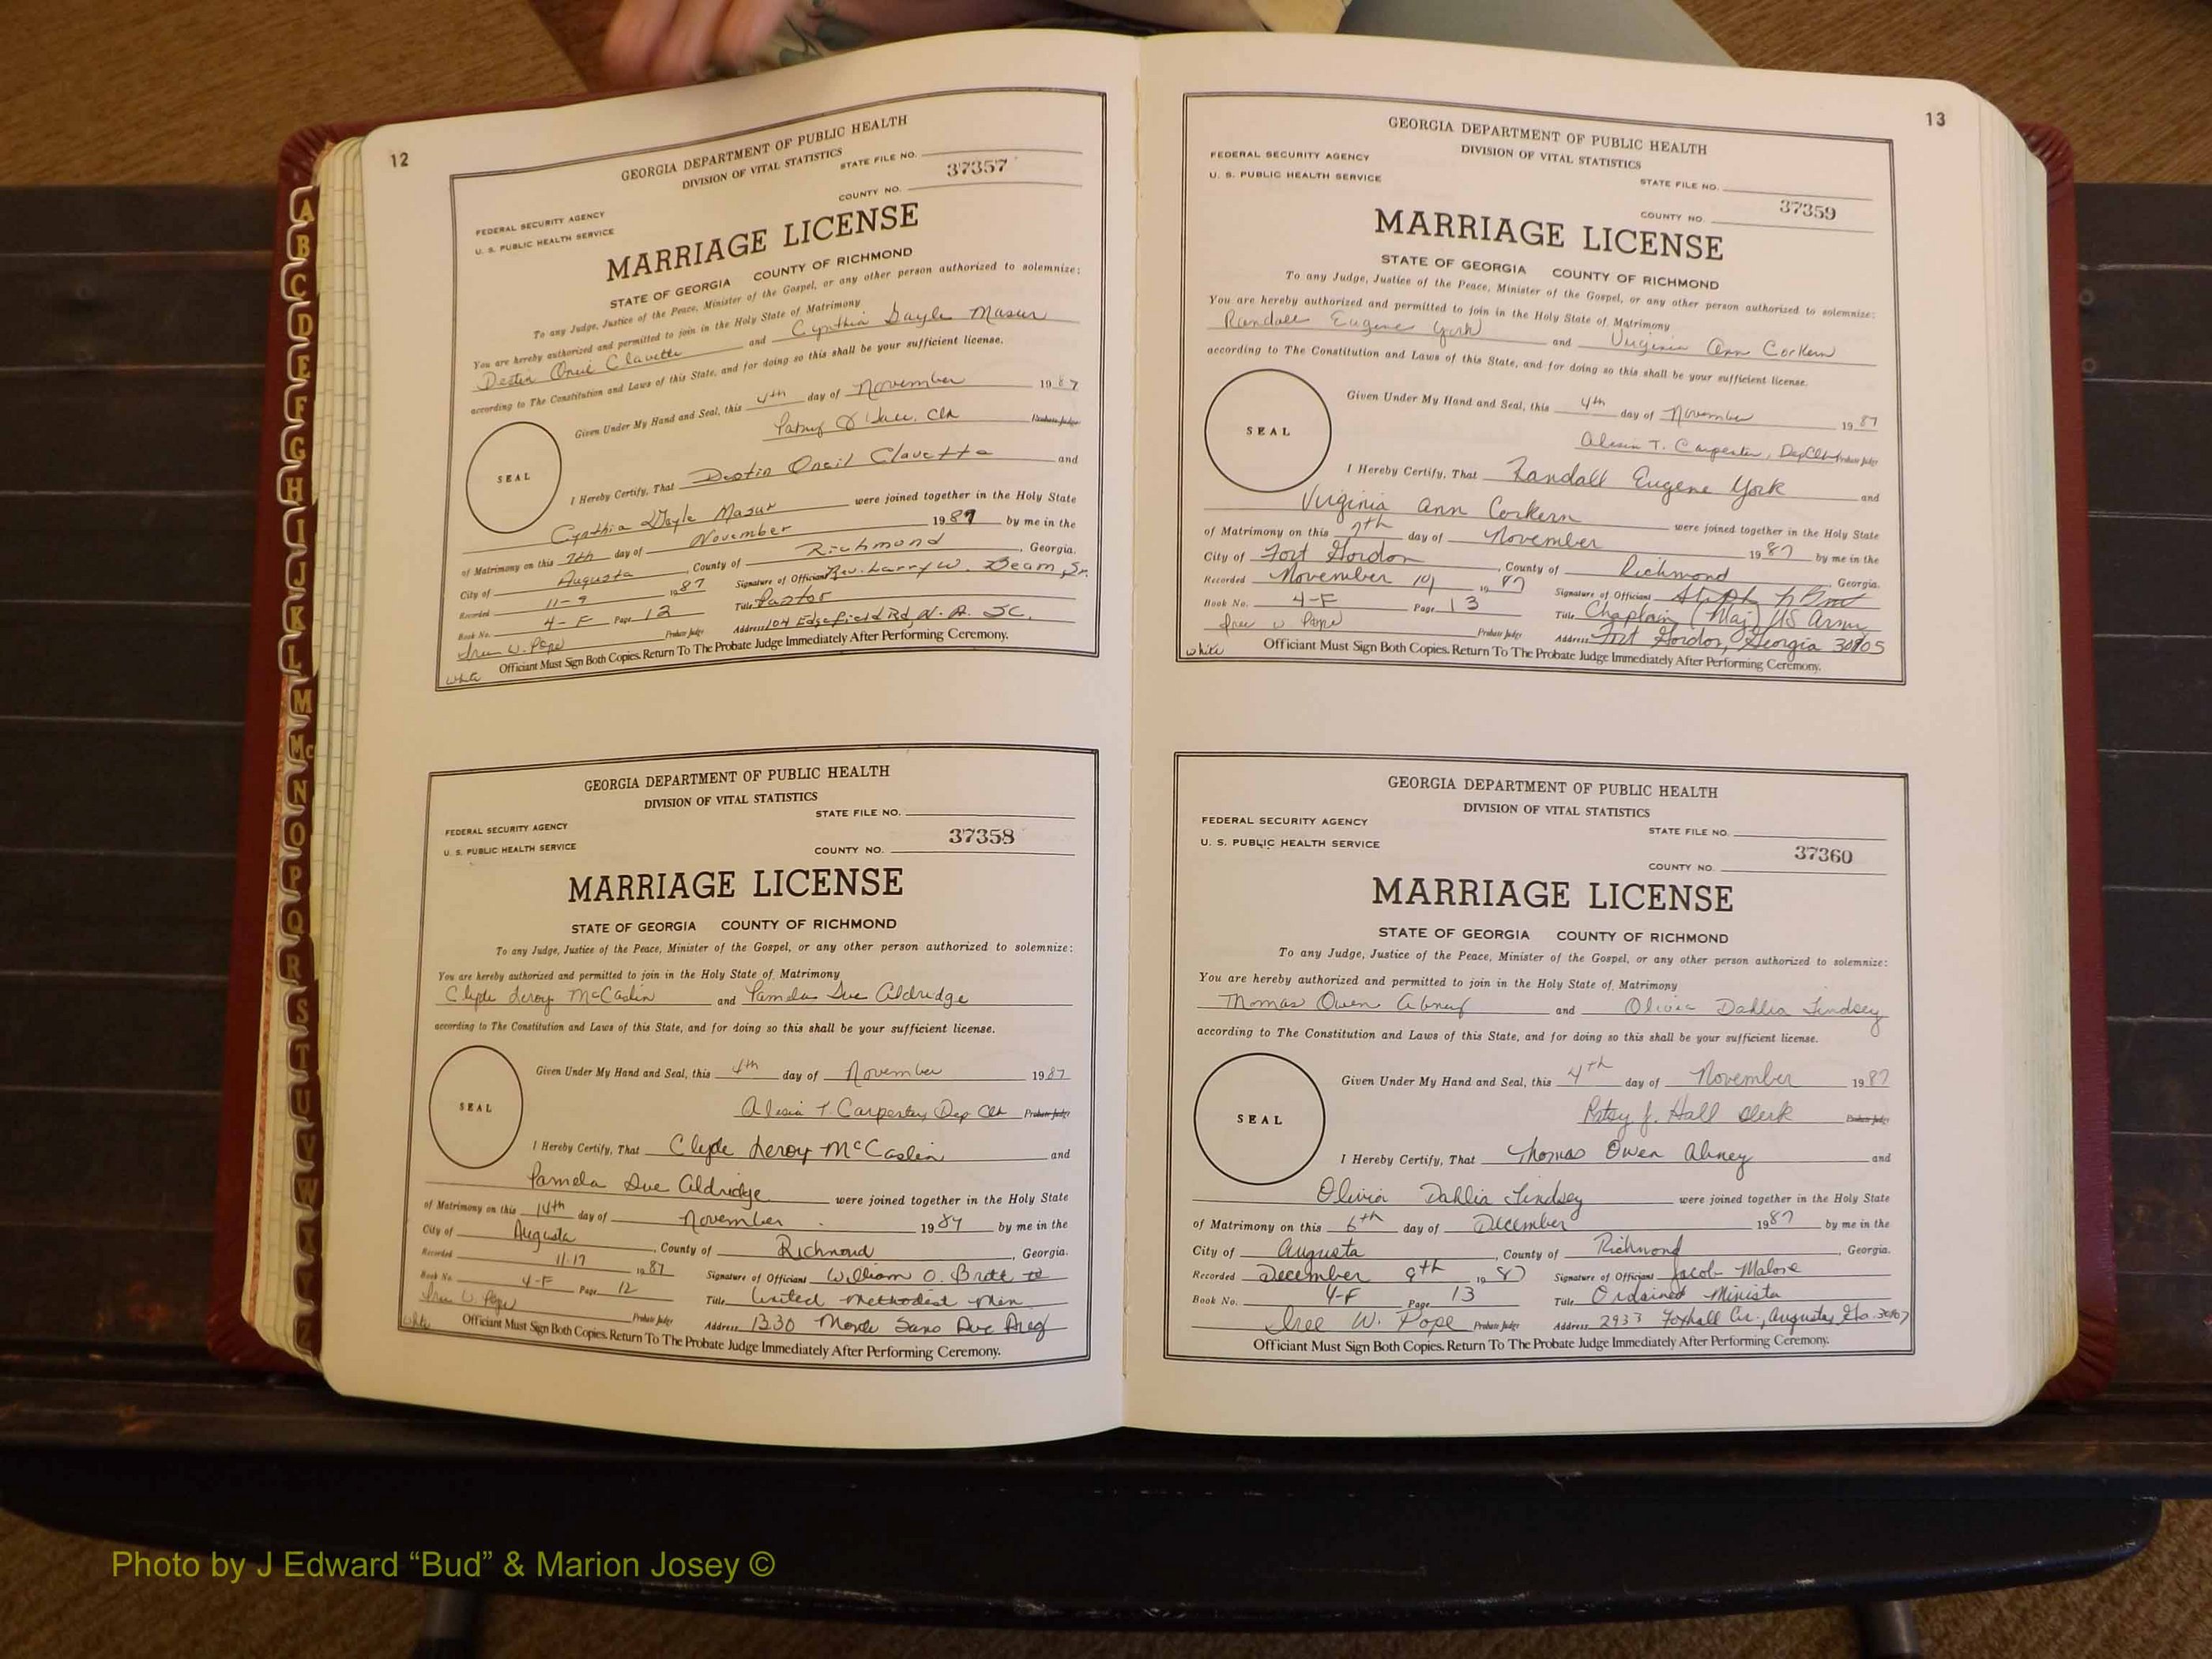 12
GEORGIA DEPARTMENT OF PUBLIC HEALTH
DIVISION OF VITAL STATISTICS
STATE FILE NO.
37357
COUNTY NO.
FEDERAL SECURITY AGENCY
U. S. PUBLIC HEALTH SERVICE
MARRIAGE LICENSE
STATE OF GEORGIA COUNTY OF RICHMOND
To any Judge, Justice of the Peace, Minister of the Gospel, or any other person authorized to solemnize:
You are hereby authorized and permitted to join in the Holy State of Matrimony
Destin Oneil Clavette and Cynthia Gayle Masur
according to The Constitution and Laws of this State, and for doing so this shall be your sufficient license.
Given Under My Hand and Seal, this 4th day of November 1987
Clk Probate Judge
SEAL
I Hereby Certify, That Destin Oneil Clavette and
Cynthia Gayle Masur were joined together in the Holy State
of Matrimony on this 7th day of November 1987 by me in the
City of Augusta, County of Richmond, Georgia.
Recorded 11-9 1987 Signature of Officiant Rev. Larry W. Beam, Sr.
Book No. 4-F Page 12 Title Pastor
Probate Judge Address 104 Edgefield Rd, N. A. SC.
Officiant Must Sign Both Copies. Return To The Probate Judge Immediately After Performing Ceremony.
white
GEORGIA DEPARTMENT OF PUBLIC HEALTH
DIVISION OF VITAL STATISTICS
STATE FILE NO.
FEDERAL SECURITY AGENCY
37358
U. S. PUBLIC HEALTH SERVICE
COUNTY NO.
MARRIAGE LICENSE
STATE OF GEORGIA COUNTY OF RICHMOND
To any Judge, Justice of the Peace, Minister of the Gospel, or any other person authorized to solemnize:
You are hereby authorized and permitted to join in the Holy State of Matrimony
Clyde Leroy McCaslin and Pamela Sue Aldridge
according to The Constitution and Laws of this State, and for doing so this shall be your sufficient license.
Given Under My Hand and Seal, this 4th day of November 1987
Alesia T. Carpenter, Dep Clk Probate Judge
SEAL
I Hereby Certify, That Clyde Leroy McCaslin and
Pamela Sue Aldridge were joined together in the Holy State
of Matrimony on this 14th day of November 1987 by me in the
City of Augusta, County of Richmond, Georgia.
Recorded 11-17 1987 Signature of Officiant William O. Britt
Book No. 4-F Page 12 Title United Methodist Min
Probate Judge Address 1330 Monte Sano Ave Aug
white
Officiant Must Sign Both Copies. Return To The Probate Judge Immediately After Performing Ceremony.
13
GEORGIA DEPARTMENT OF PUBLIC HEALTH
DIVISION OF VITAL STATISTICS
FEDERAL SECURITY AGENCY
U. S. PUBLIC HEALTH SERVICE
STATE FILE NO.
37359
COUNTY NO.
MARRIAGE LICENSE
STATE OF GEORGIA COUNTY OF RICHMOND
To any Judge, Justice of the Peace, Minister of the Gospel, or any other person authorized to solemnize:
You are hereby authorized and permitted to join in the Holy State of Matrimony
Randall Eugene York and Virginia Ann Corkern
according to The Constitution and Laws of this State, and for doing so this shall be your sufficient license.
Given Under My Hand and Seal, this 4th day of November 1987
Alesia T. Carpenter, Dep Clk Probate Judge
SEAL
I Hereby Certify, That Randall Eugene York and
Virginia Ann Corkern were joined together in the Holy State
of Matrimony on this 7th day of November 1987 by me in the
City of Fort Gordon, County of Richmond, Georgia.
Recorded November 1987 Signature of Officiant
Book No. 4-F Page 13 Title Chaplain (Maj) US Army
Probate Judge Address Fort Gordon, Georgia 30905
white
Officiant Must Sign Both Copies. Return To The Probate Judge Immediately After Performing Ceremony.
GEORGIA DEPARTMENT OF PUBLIC HEALTH
DIVISION OF VITAL STATISTICS
FEDERAL SECURITY AGENCY
STATE FILE NO.
U. S. PUBLIC HEALTH SERVICE
37360
COUNTY NO.
MARRIAGE LICENSE
STATE OF GEORGIA COUNTY OF RICHMOND
To any Judge, Justice of the Peace, Minister of the Gospel, or any other person authorized to solemnize:
You are hereby authorized and permitted to join in the Holy State of Matrimony
Thomas Owen Abney and Olivia Dahlia Lindsey
according to The Constitution and Laws of this State, and for doing so this shall be your sufficient license.
Given Under My Hand and Seal, this 4th day of November 1987
Patsy J. Hall Clerk Probate Judge
SEAL
I Hereby Certify, That Thomas Owen Abney and
Olivia Dahlia Lindsey were joined together in the Holy State
of Matrimony on this 6th day of December 1987 by me in the
City of Augusta, County of Richmond, Georgia.
Recorded December 9th 1987 Signature of Officiant Jacob Malone
Book No. 4-F Page 13 Title Ordained Minister
W. Pope Probate Judge Address 2933 Foxhall Cir., Augusta, Ga. 30907
Officiant Must Sign Both Copies. Return To The Probate Judge Immediately After Performing Ceremony.
A
B
C
D
E
F
G
H
I
J
K
L
M
Mc
N
O
P
Q
R
S
T
U
V
W
Z
Photo by J Edward “Bud” & Marion Josey ©